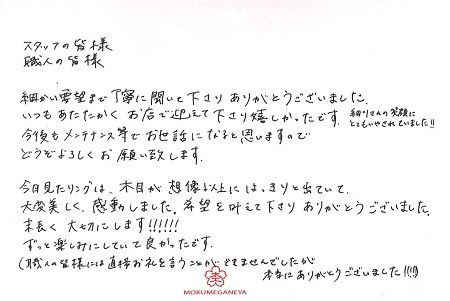 スタッフの皆様
職人の皆様
細かい要望まで丁寧に聞いて下さり ありがとうございました。
いつも あたたかく お店で迎えて下さり嬉しかったです。
細りさんの笑顔に
とてもいやされていました!!
今後も メンテナンス等で お世話に なると思いますので
どうぞよろしく お願い致します。
今日見たリングは、木目が 想像以上に はっきりと出ていて、
大変美しく、感動しました。希望を叶えて下さり ありがとうございました。
末長く 大切にします!!!!!!
ずっと楽しみにしていて 良かったです。
(職人の皆様には直接お礼を言うことが できませんでしたが
本当に ありがとうございました!!!!)
MOKUMEGANEYA